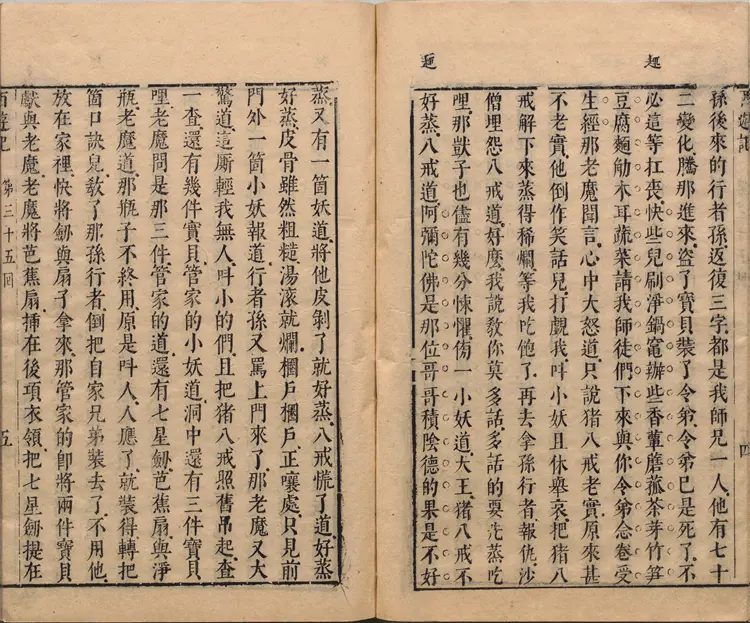 西遊記
四
孫後來的行者孫返復三字都是我師兄一人他有七十
二變化騰那進來盜了寶貝裝了令弟令弟已是死了不
必這等扛喪快些兒刷淨鍋竈辦些香蕈蘑菰茶芽竹笋
豆腐麵觔木耳蔬菜請我師徒們下來與你令弟念卷受
生經那老魔聞言心中大怒道只說猪八戒老實原來甚
不老實他倒作笑話兒打覷我呌小妖且休舉哀把猪八
戒解下來蒸得稀爛等我吃他了再去拿孫行者報仇沙
僧埋怨八戒道好麽我說教你莫多話多話的要先蒸吃
哩那獃子也儘有幾分悚懼傍一小妖道大王猪八戒不
好蒸八戒道阿彌陀佛是那位哥哥積陰德的果是不好
蒸又有一箇妖道將他皮剝了就好蒸八戒慌了道好蒸
好蒸皮骨雖然粗糙湯滾就爛棝戶棝戶正嚷處只見前
門外一箇小妖報道行者孫又罵上門來了那老魔又大
驚道這厮輕我無人呌小的們且把猪八戒照舊吊起查
一查還有幾件寶貝管家的小妖道洞中還有三件寶貝
哩老魔問是那三件管家的道還有七星劍芭蕉扇與淨
瓶老魔道那瓶子不終用原是呌人人應了就裝得轉把
箇口訣兒敎了那孫行者倒把自家兄弟裝去了不用他
放在家裡快將劍與扇子拿來那管家的卽將兩件寶貝
獻與老魔老魔將芭蕉扇揷在後項衣領把七星劍提在
西遊記
第三十五回
五